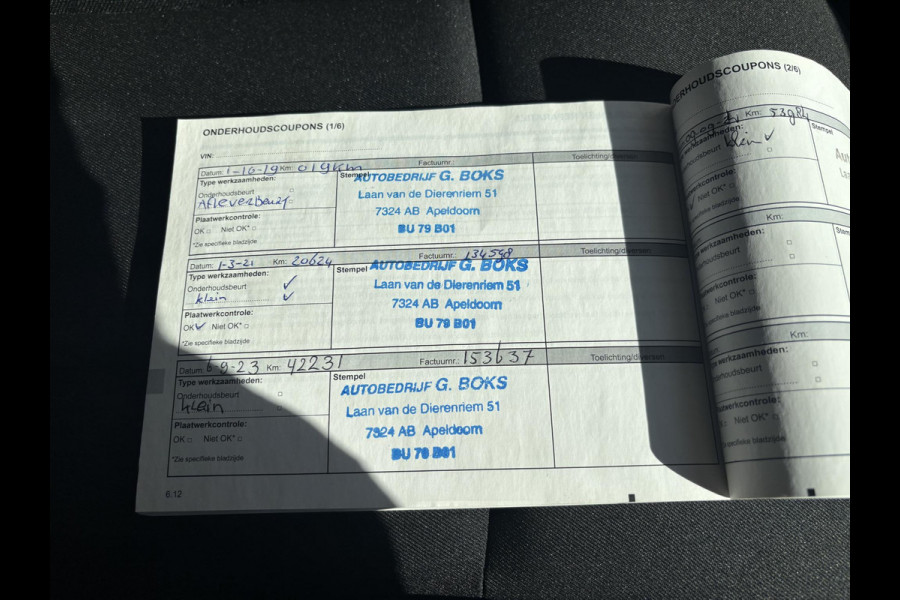 ONDERHOUDSCOUPONS (1/6)
VIN:
Datum: 1-10-19 Km: 019Km Factuurnr.: Toelichting/diversen
Type werkzaamheden: Stempel
Onderhoudsbeurt
AfleverBeurt
Plaatwerkcontrole:
OK Niet OK*
*Zie specifieke bladzijde
AUTOBEDRIJF G. BOKS
Laan van de Dierenriem 51
7324 AB Apeldoorn
BU 79 B01
Datum: 1-3-21 Km: 20624 Factuurnr.: 134598 Toelichting/diversen
Type werkzaamheden: Stempel
Onderhoudsbeurt ✓
klein ✓
Plaatwerkcontrole:
OK ✓ Niet OK*
*Zie specifieke bladzijde
AUTOBEDRIJF G. BOKS
Laan van de Dierenriem 51
7324 AB Apeldoorn
BU 79 B01
Datum: 6-9-23 Km: 42231 Factuurnr.: 153637 Toelichting/diversen
Type werkzaamheden: Stempel
Onderhoudsbeurt
klein
Plaatwerkcontrole:
OK Niet OK*
*Zie specifieke bladzijde
AUTOBEDRIJF G. BOKS
Laan van de Dierenriem 51
7324 AB Apeldoorn
BU 79 B01
6.12
ERHOUDSCOUPONS (2/6)
Km:
mheden: Stempel
beurt klein ✓
controle:
Niet OK*
specifieke bladzijde
Km:
werkzaamheden:
erhoudsbeurt
werkcontrole:
Niet OK*
specifieke bladzijde
Km:
werkzaamheden:
erhoudsbeurt
atwerkcontrole:
Niet OK*
specifieke bladzijde